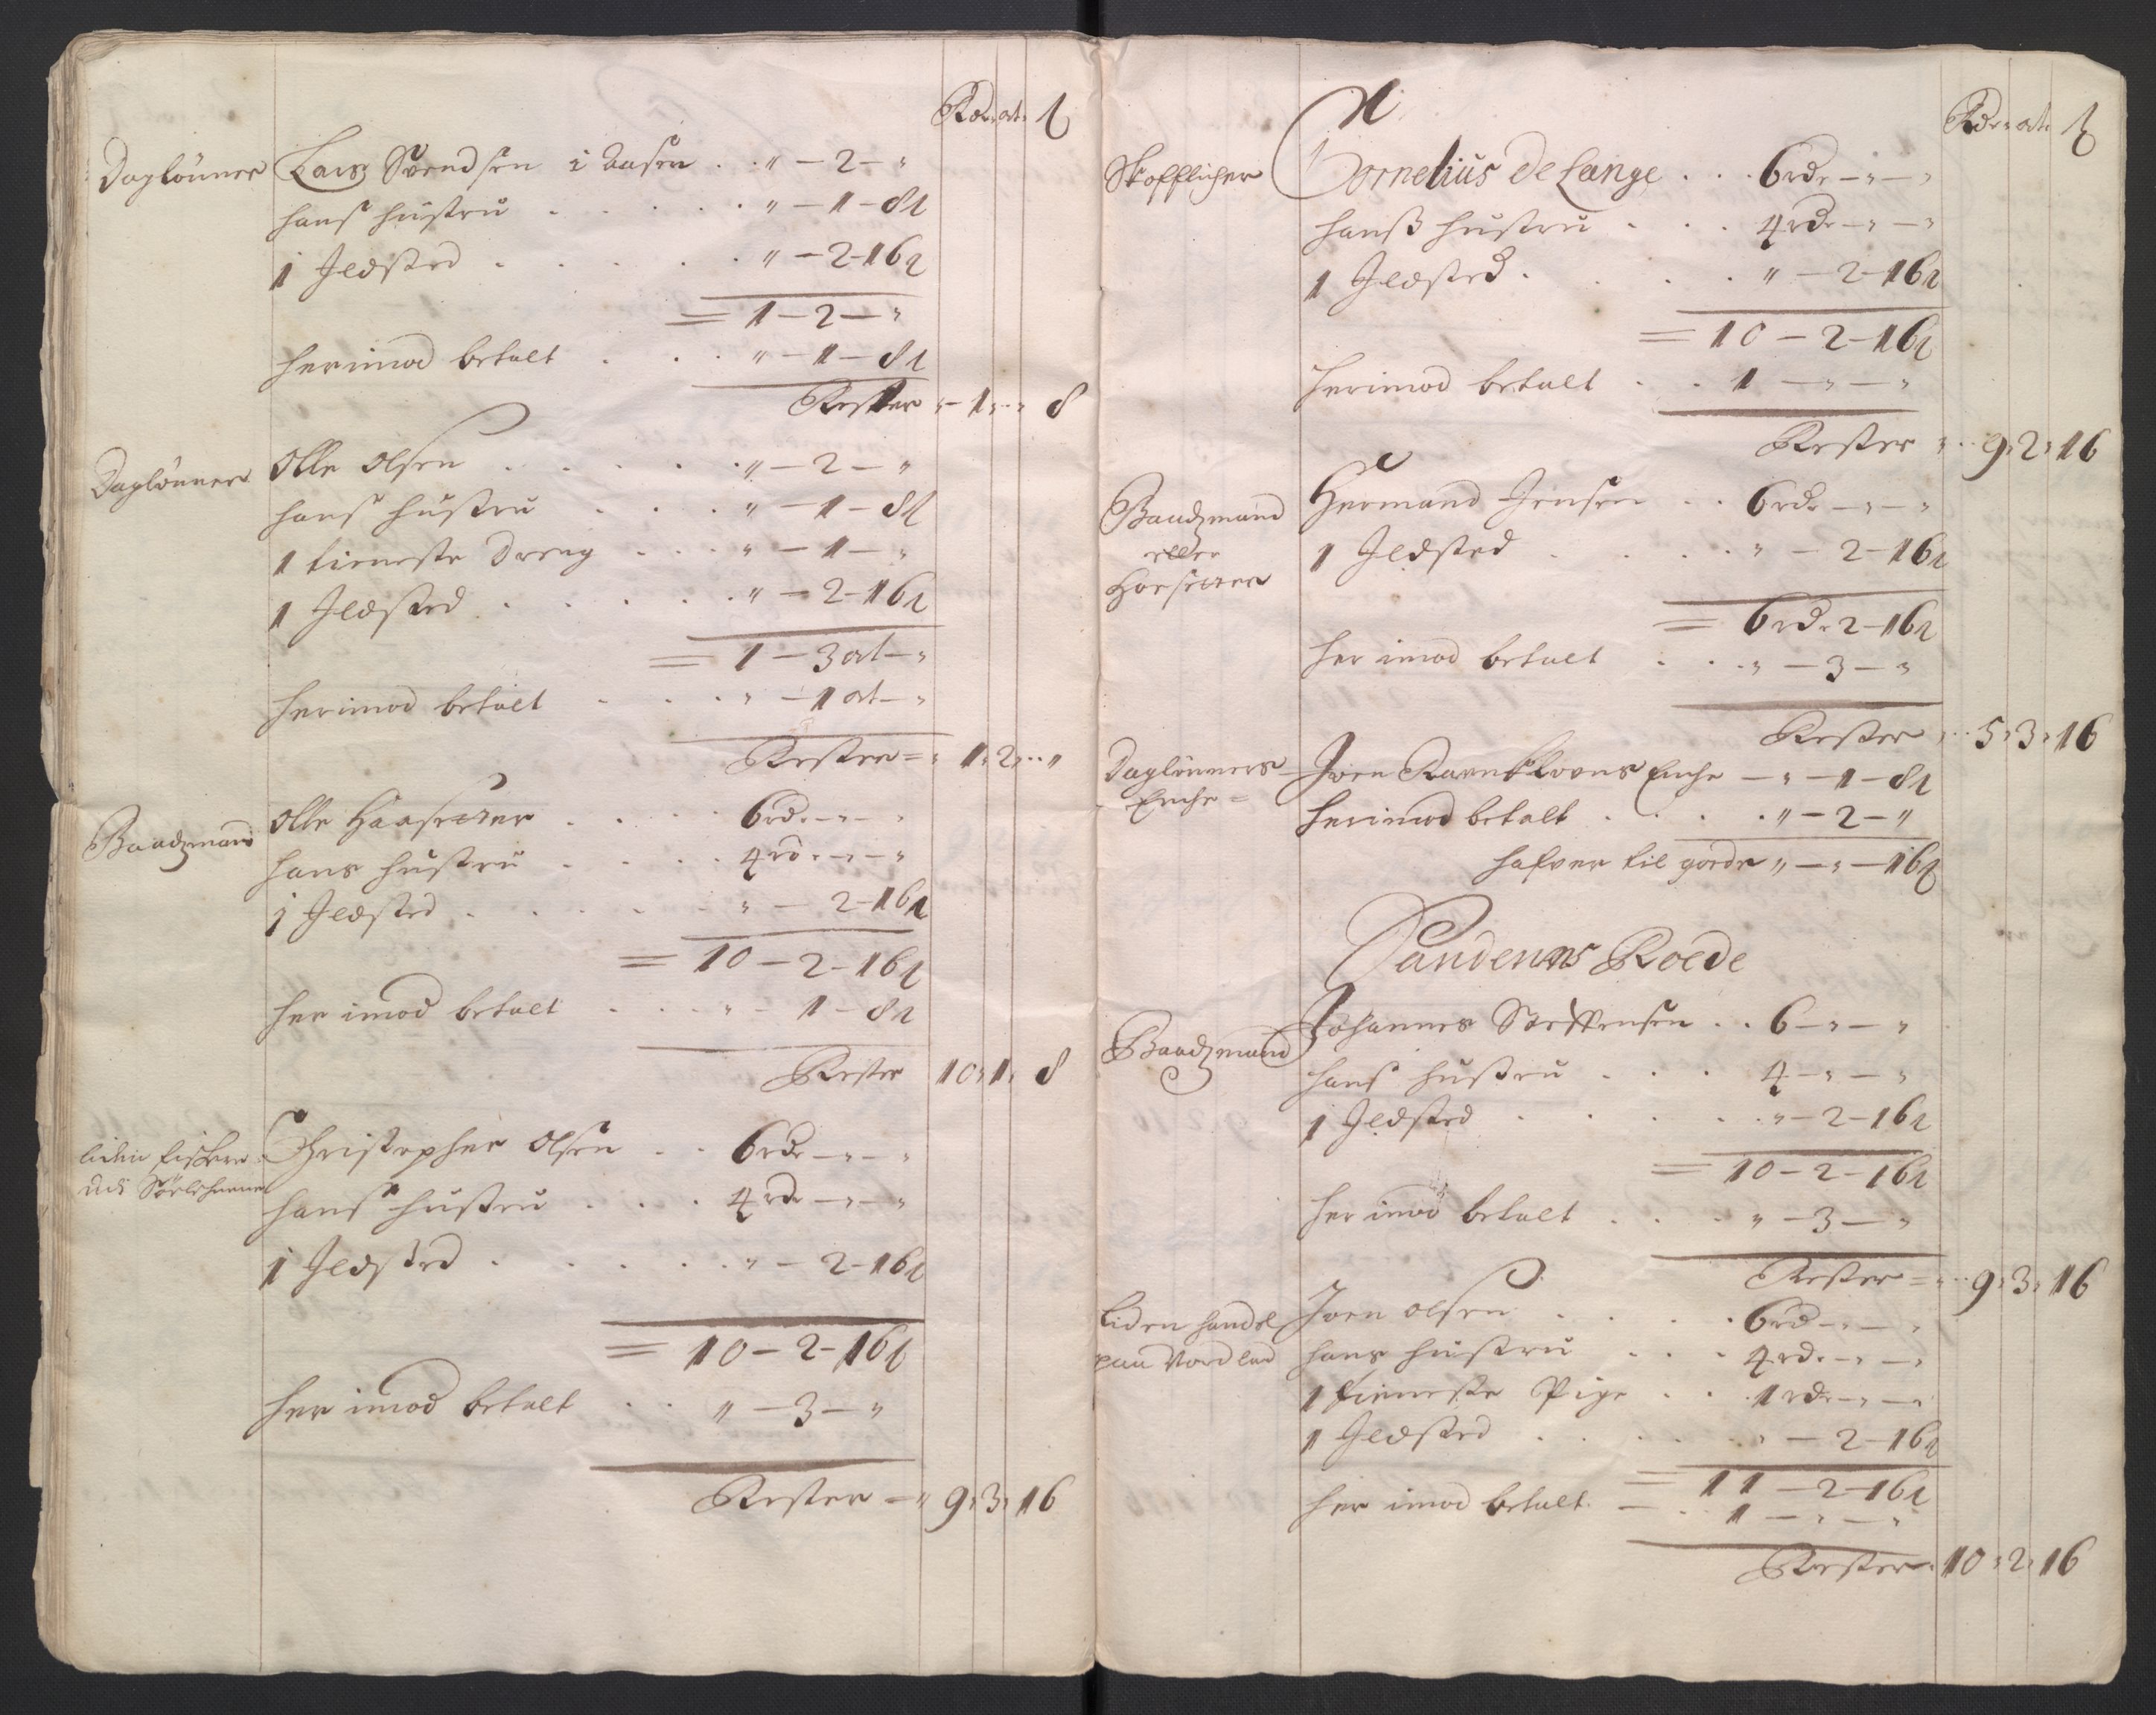 Rdr. ort. ß
Daglönner Lars Svendsen i Aasen . . " – 2 – "
hans hustru . . . . . " – 1 – 8 ß
1 Ildsted . . . . . " – 2 – 16 ß
= 1 – 2 – "
herimod betalt . . . " – 1 – 8 ß
Rester " – 1 " – " 8
Daglönner Olle Olsen . . . . . " – 2 – "
hans hustru . . . . " – 1 – 8 ß
1 tieneste Dreng . . . " – 1 – "
1 Ildsted . . . . . " – 2 – 16 ß
= 1 – 3 ort – "
herimod betalt . . . . " – 1 ort – "
Rester = " 1 " 2 " – "
Baadzmand Olle Haaseter . . . . 6 rdr. – " – "
hans hustru . . . . 4 rd. – " – "
1 Ildsted . . . . . " – 2 – 16 ß
= 10 – 2 – 16 ß
her imod betalt . . . " – 1 – 8 ß
Rester 10 " 1 " 8
liden fisker Christopher Olsen . . 6 rdr – " – "
hans hustru . . . 4 rdr – " – "
1 Ildsted . . . . . " – 2 – 16 ß
= 10 – 2 – 16 ß
her imod betalt . . " – 3 – "
Rester – " 9 " 3 " 16
Rdr. ort. ß
Skofflicher Cornelius De Lange . . . 6 rdr – " – "
hanß hustru . . . 4 rdr – " – "
1 Ildsted . . . . " – 2 – 16 ß
= 10 – 2 – 16 ß
herimod betalt . . 1 – " – "
Rester " . . 9 " 2 " 16
Baadzmand Hermand Jensen . . 6 rdr – " – "
eller 1 Ildsted . . . . " – 2 – 16 ß
= 6 rdr. 2 – 16 ß
her imod betalt . . . " – 3 – "
Rester " . . 5 " 3 " 16
Daglönners Enche = Joen Enche – " – 1 – 8 ß
herimod betalt . . . . " – 2 – "
hafver til gode " – " – 16 ß
Sandenns Roede
Baadzmand Johannes Steffensen . . 6 – " – "
hans hustru . . . 4 – " – "
1 Ildsted . . . . . " – 2 – 16 ß
= 10 – 2 – 16 ß
her imod betalt . . . " – 3 – "
Rester = " . . 9 " 3 " 16
liden handel Joen Olsen . . . . 6 rd – " – "
paa hans hustru . . . 4 rd. – " – "
1 tieneste Pige . . . 1 rdr – " – "
1 Ildsted . . . . . " – 2 – 16 ß
= 11 – 2 – 16 ß
her imod betalt – . . 1 – " – "
Rester 10 " 2 " 16